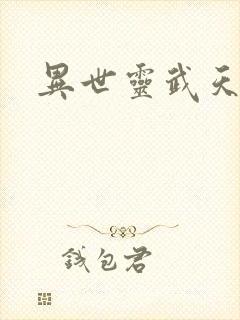 異世靈武天
錢包君